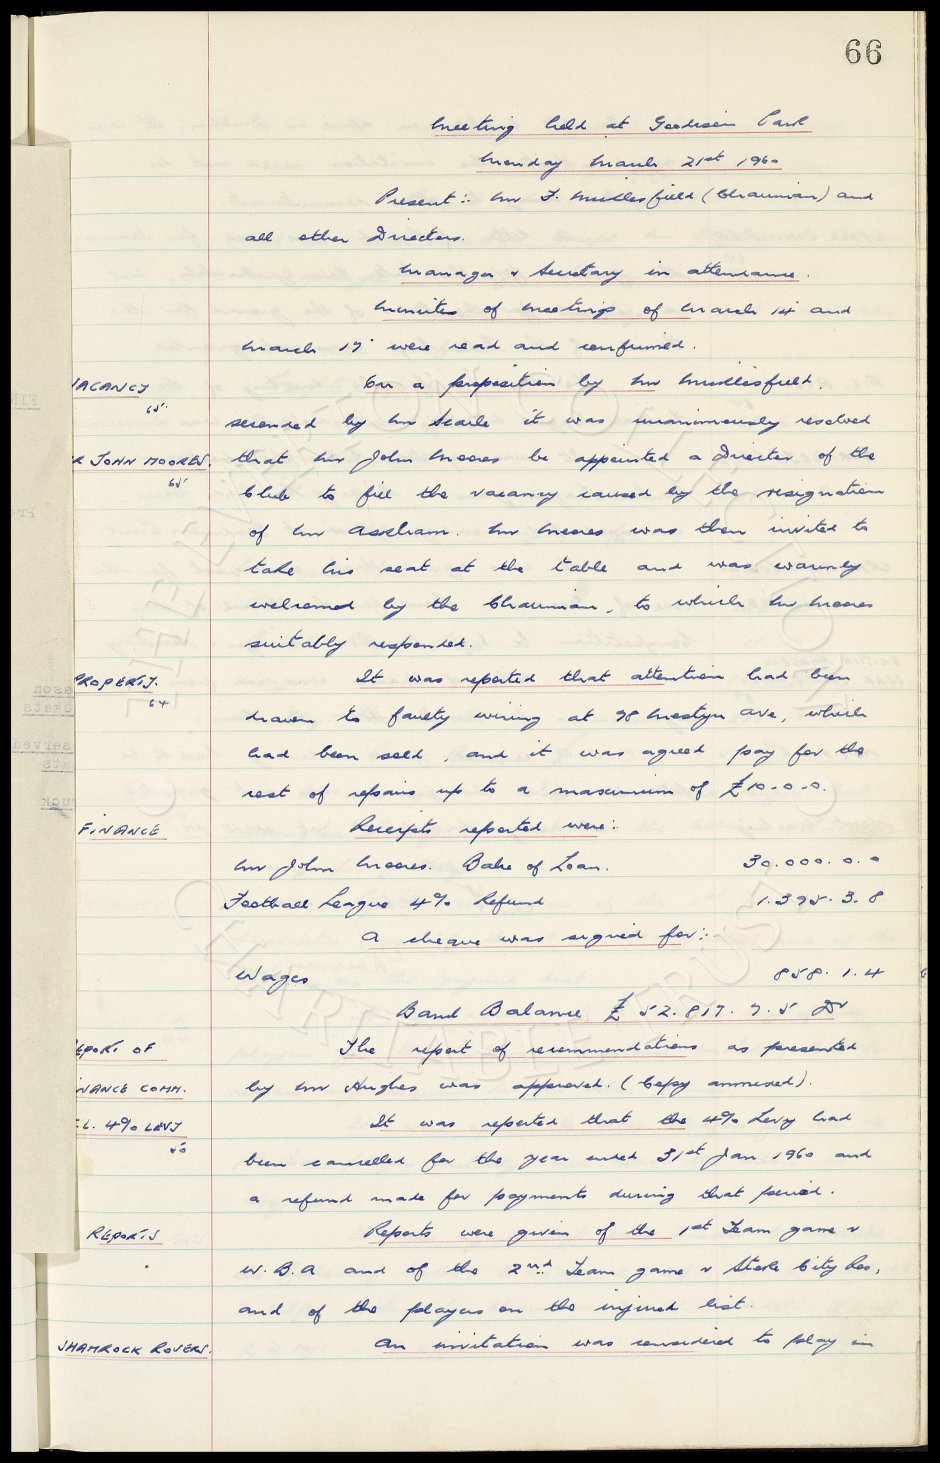 66
Meeting held at Goodison Park
Monday March 21st 1960
Present:- Mr F. Micklesfield (Chairman) and
all other Directors.
Manager & Secretary in attendance.
Minutes of meetings of March 14 and
March 17 were read and confirmed.
VACANCY On a proposition by Mr Micklesfield,
65
seconded by Mr Searle it was unanimously resolved
R JOHN MOORES. that Mr John Moores be appointed a Director of the
65
Club to fill the vacancy caused by the resignation
of Mr Askham. Mr Moores was then invited to
take his seat at the table and was warmly
welcomed by the Chairman, to which Mr Moores
suitably responded.
PROPERTY. It was reported that attention had been
64
drawn to faulty wiring at 98 Mostyn Ave, which
had been sold, and it was agreed pay for the
cost of repairs up to a maximum of £10-0-0.
FINANCE Receipts reported were:-
Mr John Moores. Balce of Loan. 30.000.0.0
Football League 4% Refund 1.395.3.8
A cheque was signed for:-
Wages 858.1.4
Bank Balance £52.817.7.5 Dr
EPORT OF The report of recommendations as presented
NANCE COMM. by Mr Hughes was approved. (Copy annexed).
.L. 4% LEVY It was reported that the 4% Levy had
50
been cancelled for the year ended 31st Jan 1960 and
a refund made for payments during that period.
REPORTS Reports were given of the 1st Team game v
W.B.A and of the 2nd Team game v Stoke City Res,
and of the players on the injured list.
SHAMROCK ROVERS. An invitation was considered to play in